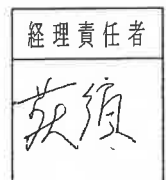 経理責任者
荻須